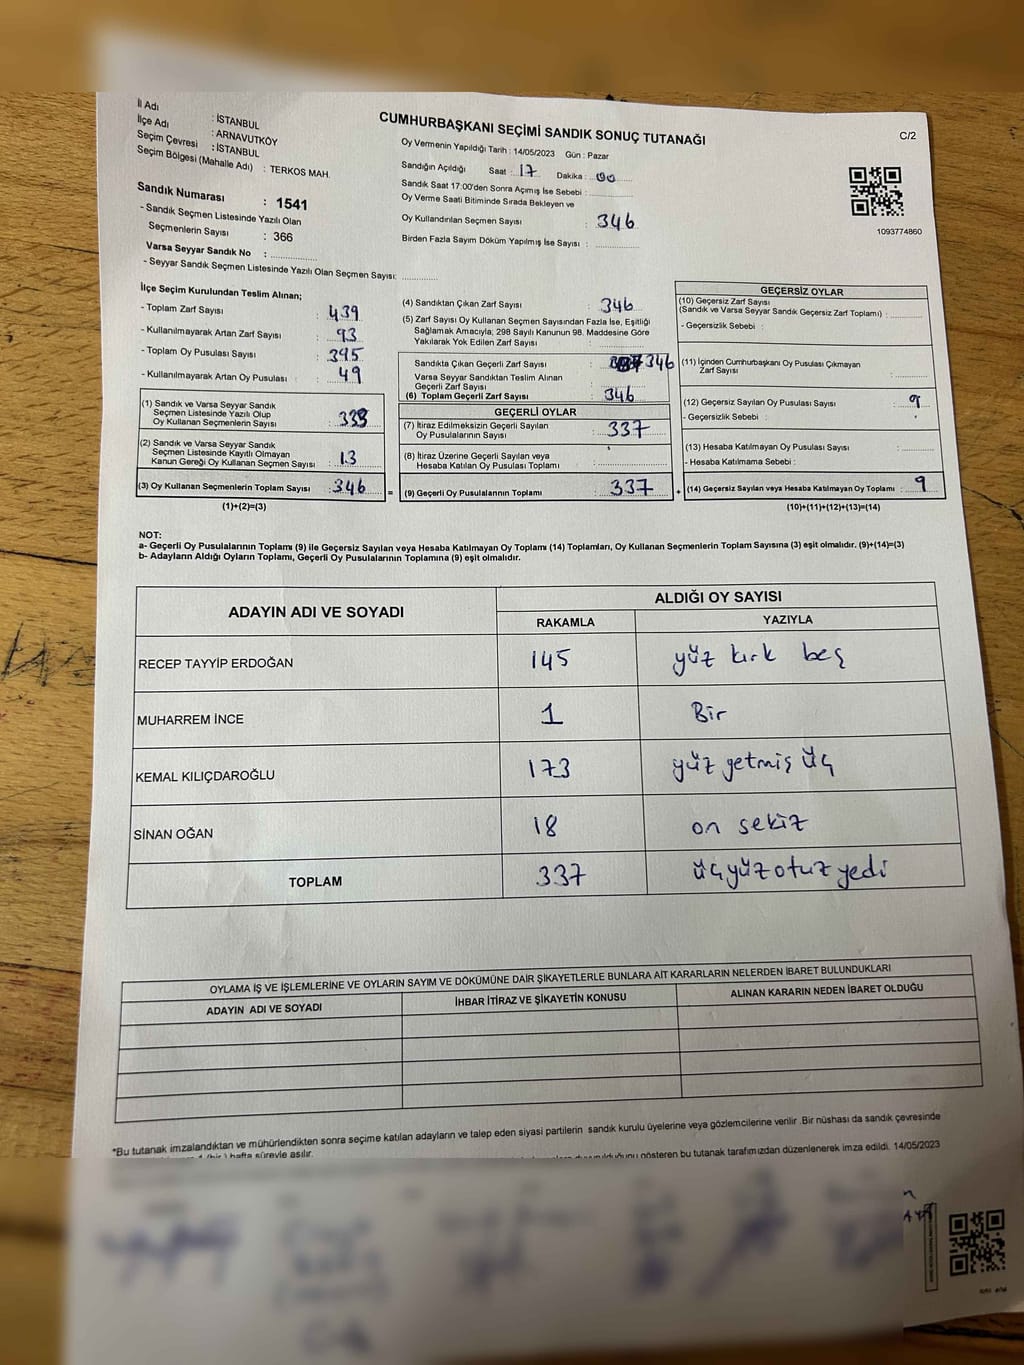 İl Adı : İSTANBUL
İlçe Adı : ARNAVUTKÖY
Seçim Çevresi : İSTANBUL
Seçim Bölgesi (Mahalle Adı) : TERKOS MAH.
Sandık Numarası : 1541
- Sandık Seçmen Listesinde Yazılı Olan
Seçmenlerin Sayısı : 366
Varsa Seyyar Sandık No :
- Seyyar Sandık Seçmen Listesinde Yazılı Olan Seçmen Sayısı:
CUMHURBAŞKANI SEÇİMİ SANDIK SONUÇ TUTANAĞI
C/2
Oy Vermenin Yapıldığı Tarih : 14/05/2023 Gün : Pazar
Sandığın Açıldığı Saat : 17 Dakika : 00
Sandık Saat 17:00'den Sonra Açımış İse Sebebi :
Oy Verme Saati Bitiminde Sırada Bekleyen ve
Oy Kullandırılan Seçmen Sayısı : 346
Birden Fazla Sayım Döküm Yapılmış İse Sayısı :
1093774860
İlçe Seçim Kurulundan Teslim Alınan;
- Toplam Zarf Sayısı : 439
- Kullanılmayarak Artan Zarf Sayısı : 93
- Toplam Oy Pusulası Sayısı : 395
- Kullanılmayarak Artan Oy Pusulası : 49
(1) Sandık ve Varsa Seyyar Sandık
Seçmen Listesinde Yazılı Olup
Oy Kullanan Seçmenlerin Sayısı : 333
(2) Sandık ve Varsa Seyyar Sandık
Seçmen Listesinde Kayıtlı Olmayan
Kanun Gereği Oy Kullanan Seçmen Sayısı : 13
(3) Oy Kullanan Seçmenlerin Toplam Sayısı : 346
(1)+(2)=(3)
(4) Sandıktan Çıkan Zarf Sayısı : 346
(5) Zarf Sayısı Oy Kullanan Seçmen Sayısından Fazla İse, Eşitliği
Sağlamak Amacıyla; 298 Sayılı Kanunun 98. Maddesine Göre
Yakılarak Yok Edilen Zarf Sayısı :
Sandıkta Çıkan Geçerli Zarf Sayısı : 346
Varsa Seyyar Sandıktan Teslim Alınan
Geçerli Zarf Sayısı :
(6) Toplam Geçerli Zarf Sayısı : 346
GEÇERLİ OYLAR
(7) İtiraz Edilmeksizin Geçerli Sayılan
Oy Pusulalarının Sayısı : 337
(8) İtiraz Üzerine Geçerli Sayılan veya
Hesaba Katılan Oy Pusulası Toplamı :
= (9) Geçerli Oy Pusulalarının Toplamı : 337
GEÇERSİZ OYLAR
(10) Geçersiz Zarf Sayısı
(Sandık ve Varsa Seyyar Sandık Geçersiz Zarf Toplamı) :
- Geçersizlik Sebebi :
(11) İçinden Cumhurbaşkanı Oy Pusulası Çıkmayan
Zarf Sayısı :
(12) Geçersiz Sayılan Oy Pusulası Sayısı : 9
- Geçersizlik Sebebi :
(13) Hesaba Katılmayan Oy Pusulası Sayısı :
- Hesaba Katılmama Sebebi :
+ (14) Geçersiz Sayılan veya Hesaba Katılmayan Oy Toplamı : 9
(10)+(11)+(12)+(13)=(14)
NOT:
a- Geçerli Oy Pusulalarının Toplamı (9) ile Geçersiz Sayılan veya Hesaba Katılmayan Oy Toplamı (14) Toplamları, Oy Kullanan Seçmenlerin Toplam Sayısına (3) eşit olmalıdır. (9)+(14)=(3)
b- Adayların Aldığı Oyların Toplamı, Geçerli Oy Pusulalarının Toplamına (9) eşit olmalıdır.
ADAYIN ADI VE SOYADI
ALDIĞI OY SAYISI
RAKAMLA YAZIYLA
RECEP TAYYİP ERDOĞAN 145 yüz kırk beş
MUHARREM İNCE 1 Bir
KEMAL KILIÇDAROĞLU 173 yüz yetmiş üç
SİNAN OĞAN 18 on sekiz
TOPLAM 337 üçyüzotuzyedi
OYLAMA İŞ VE İŞLEMLERİNE VE OYLARIN SAYIM VE DÖKÜMÜNE DAİR ŞİKAYETLERLE BUNLARA AİT KARARLARIN NELERDEN İBARET BULUNDUKLARI
ADAYIN ADI VE SOYADI İHBAR İTİRAZ VE ŞİKAYETİN KONUSU ALINAN KARARIN NEDEN İBARET OLDUĞU
*Bu tutanak imzalandıktan ve mühürlendikten sonra seçime katılan adayların ve talep eden siyasi partilerin sandık kurulu üyelerine veya gözlemcilerine verilir .Bir nüshası da sandık çevresinde
1 (bir ) hafta süreyle asılır.
gösteren bu tutanak tarafımızdan düzenlenerek imza edildi. 14/05/2023